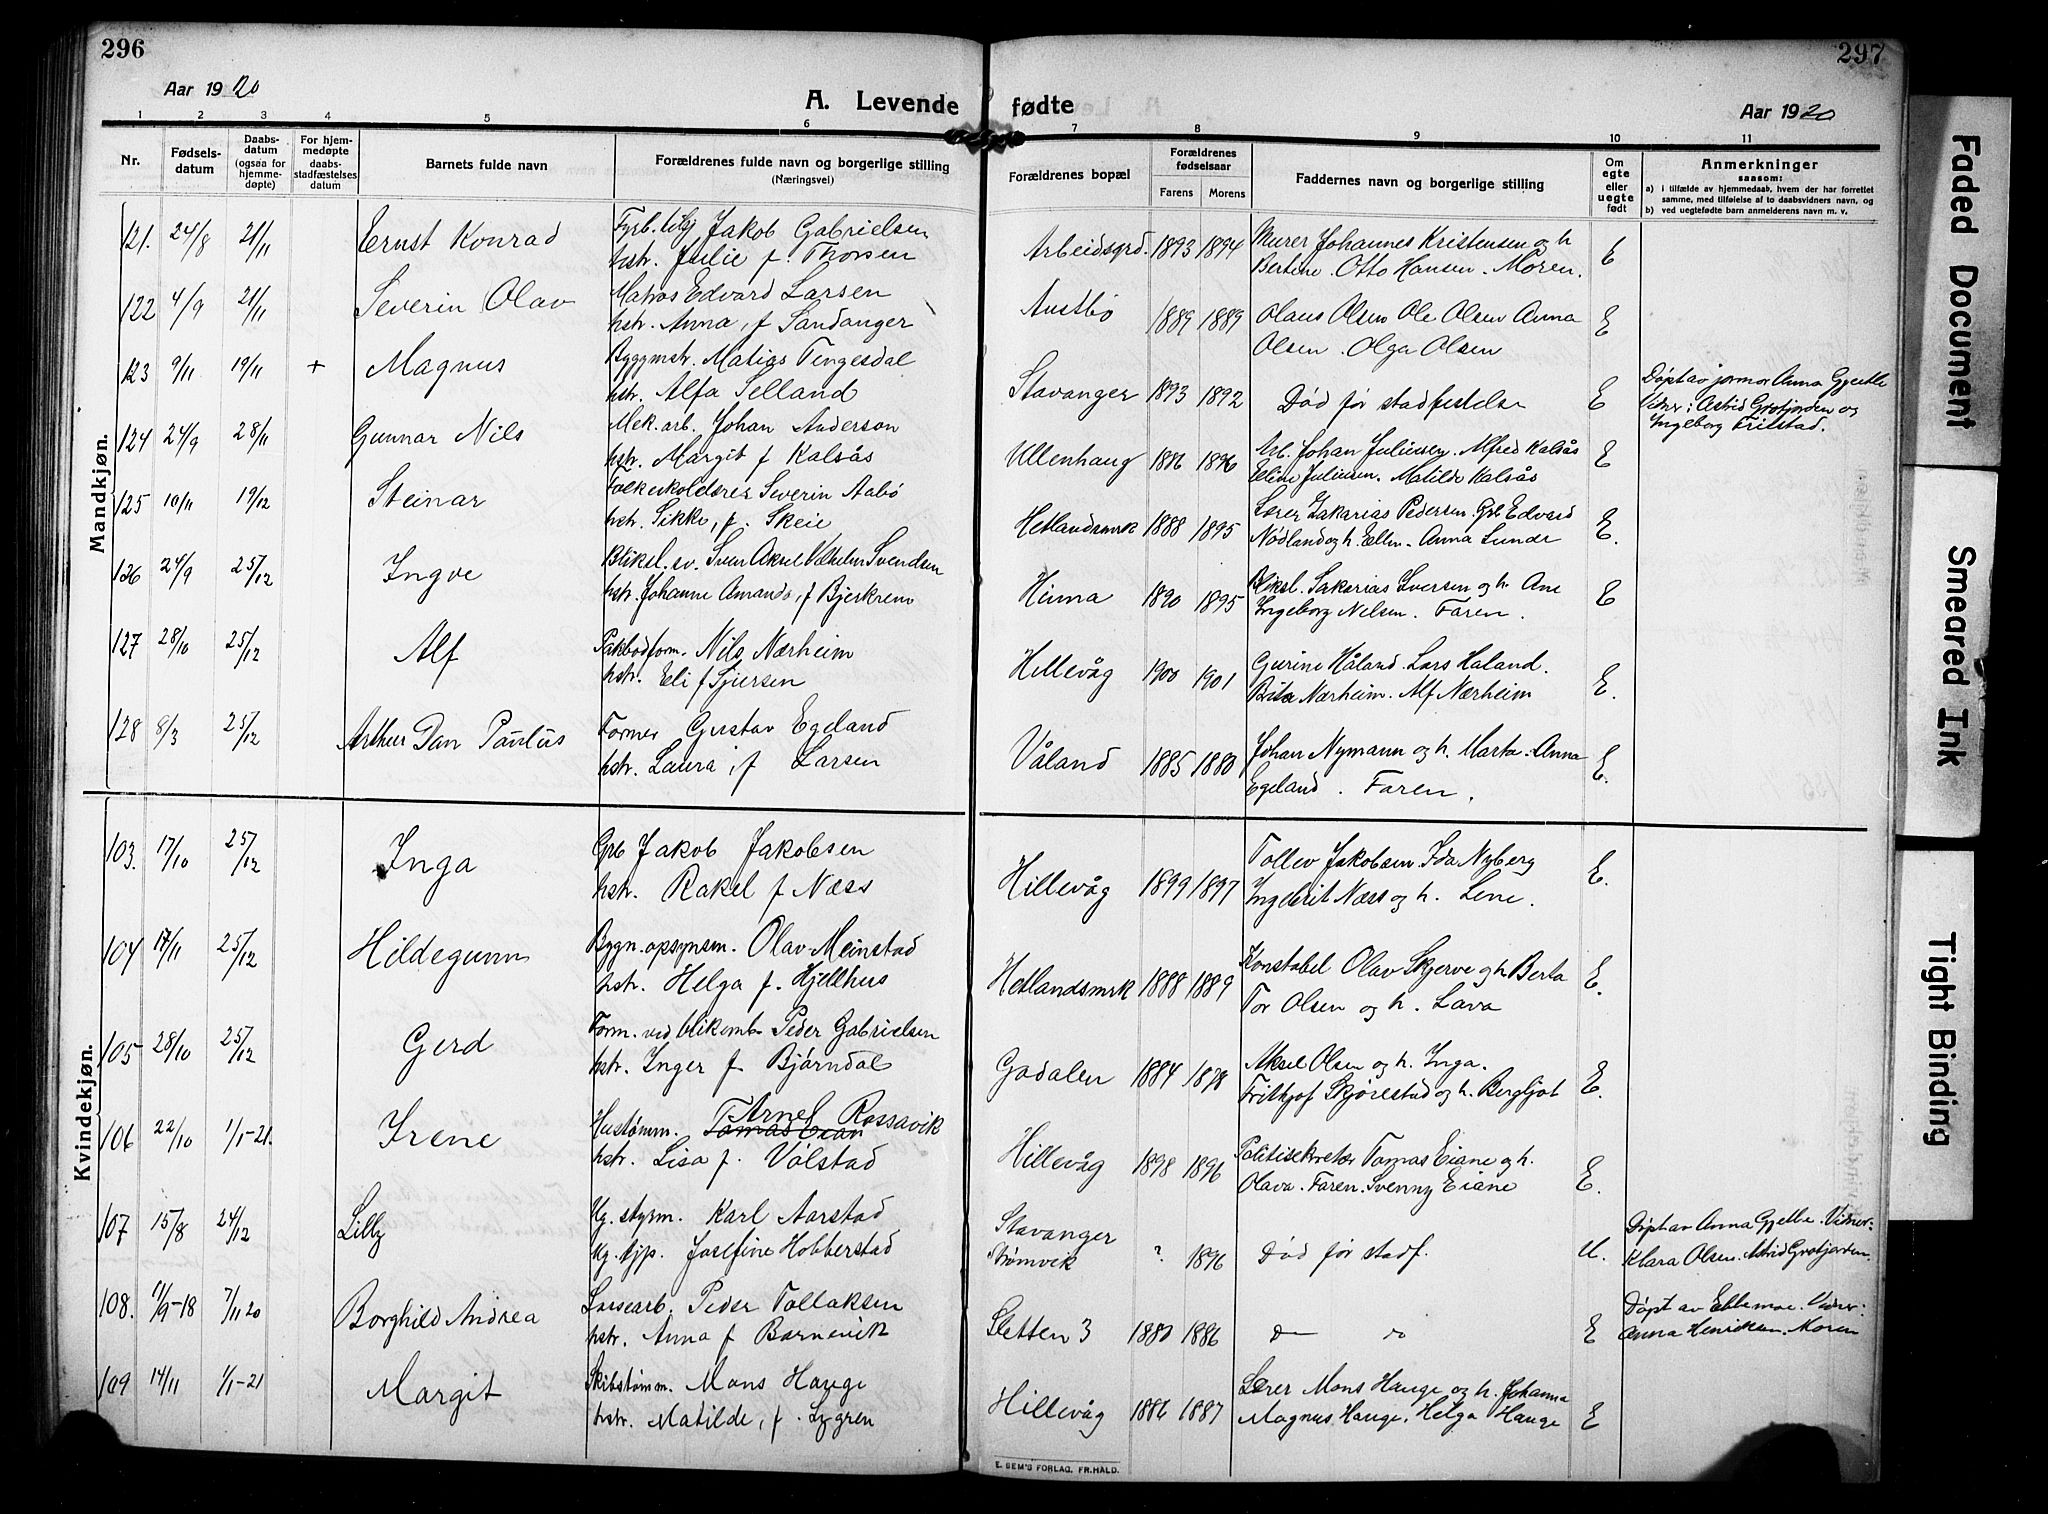 296
297
Aar 1920
A. Levende fødte
Aar 1920
1 2 3 4 5 6 7 8 9 10 11
Nr.
Fødsels-
datum
Daabs-
datum
(ogsaa for
hjemme-
døpte)
For hjem-
medøpte
daabs-
stadfæstelses
datum
Barnets fulde navn
Forældrenes fulde navn og borgerlige stilling
(Næringsvei)
Forældrenes bopæl
Forældrenes
fødselsaar
Farens Morens
Faddernes navn og borgerlige stilling
Om
egte
eller
uegte
født
Anmerkninger
saasom:
a) i tilfælde av hjemmedaab, hvem der har forrettet
samme, med tilføielse af to daabsvidners navn, og
b) ved uegtefødte barn anmelderens navn m. v.
Mandkjøn.
121. 24/8 21/11 Ernst Konrad Jakob Gabrielsen
hstr. Julie f. Thorsen
Arbeidsgrd. 1893 1894 Murer Johannes Kristensen og h.
Bertine. Otto Hansen. Moren. E
122 4/9 21/11 Severin Olav Matros Edvard Larsen
hstr. Anna, f. Sandanger
Austbø 1889 1889 Olaus Olsen Ole Olsen Anna
Olsen. Olga Olsen E
123 9/11 19/11 + Magnus Byggmstr. Matias Tengesdal
hstr. Alfa Selland
Stavanger 1893 1892 Død før stadfestelse E
Døpt av jormor Anna Gjelle
Vidner: Astrid Grotjorden og
Ingeborg
124 24/9 28/11 Gunnar Nils Mek. arb. Johan Anderson
hstr. Margit f. Kalsås
Ullenhaug 1896 Arb. Johan Juliussen. Alfred Kalsås
Juliussen. Matilde Kalsås E
125 10/11 19/12 Steinar Severin Aabø
hstr. Sikke, f. Skeie
Hetlandsmrk 1888 1895 Lærer Zakarias Pedersen. Grb Edvard
Nødland og h. Ellen. Anna Lunde E.
126 24/9 25/12 Ingve Bliksl. sv. Sven Aksel Vilhelm Svendsen
hstr. Johanne Amanda, f. Bjerkrem
Hinna 1890 1895 Bliksl. Sakarias Iversen og h. Ane
Ingeborg Nelsen. Faren. E
127 28/10 25/12 Alf Pakbodform. Nils Nærheim
hstr. Eli f. Sjursen
Hillevåg 1900 1901 Gurine Håland. Lars Håland.
Nærheim. Alf Nærheim E.
128 8/3 25/12 Arthur Dan Paulus Former Gustav Egeland
hstr. Laura, f. Larsen
Våland 1885 1880 Johan Nymann og h. Marta. Anna
Egeland. Faren. E.
Kvindekjøn.
103. 17/10 25/12 Inga Grb Jakob Jakobsen
hstr. Rakel f. Næss
Hillevåg 1899 1897 Tollev Jakobsen. Ida Nyberg
Ingebrit Næss og h. Lene. E.
104 17/11 25/12 Hildegunn Bygn. opsynsm. Olav Meinstad
hstr. Helga f. Kjellhus
Hetlandsmrk 1888 1889 Konstabel Olav Skjerve og h. Berta
Tor Olsen og h. Lava E.
105 28/10 25/12 Gerd Form. ved blikemb. Peder Gabrielsen
hstr. Inger f. Bjørndal
Godalen 1884 1898 Aksel Olsen og h. Inga.
Frithjof Skjørestad og h. Bergljot E.
106 22/10 1/1-21. Irene Hustømm. Arne Rossavik
hstr. Lisa f. Volstad
Hillevåg 1898 1896 Politisekretær Tomas Eiane og h.
Olava. Faren. Svenny Eiane E.
107 15/8 24/12 Lilly Ug. styrm. Karl Aarstad
Ug. tjp. Josefine Hobberstad
Stavanger
Strømvik ? 1896 Død før stadf. U.
Døpt av Anna Gjelle. Vidner:
Klara Olsen. Astrid Grotjorden.
108. 1/9-18 7/11 20 Borghild Andrea Lossearb. Peder Tollaksen
hstr. Anna f. Barnevik
Sletten 3 1880 1886 D— do E
Døpt av Ebbe moe. Vidner:
Anna Henriksen. Moren
109 14/11 1/1-21 Margit Skibstømm. Mons Hauge
hstr. Matilde, f. Lygren
Hillevåg 1886 1887 Lærer Mons Hauge og h. Johanna
Magnus Hauge. Helga Hauge E
E. SEM'S FORLAG, FR.HALD.
Faded Document
Smeared Ink
Tight Binding